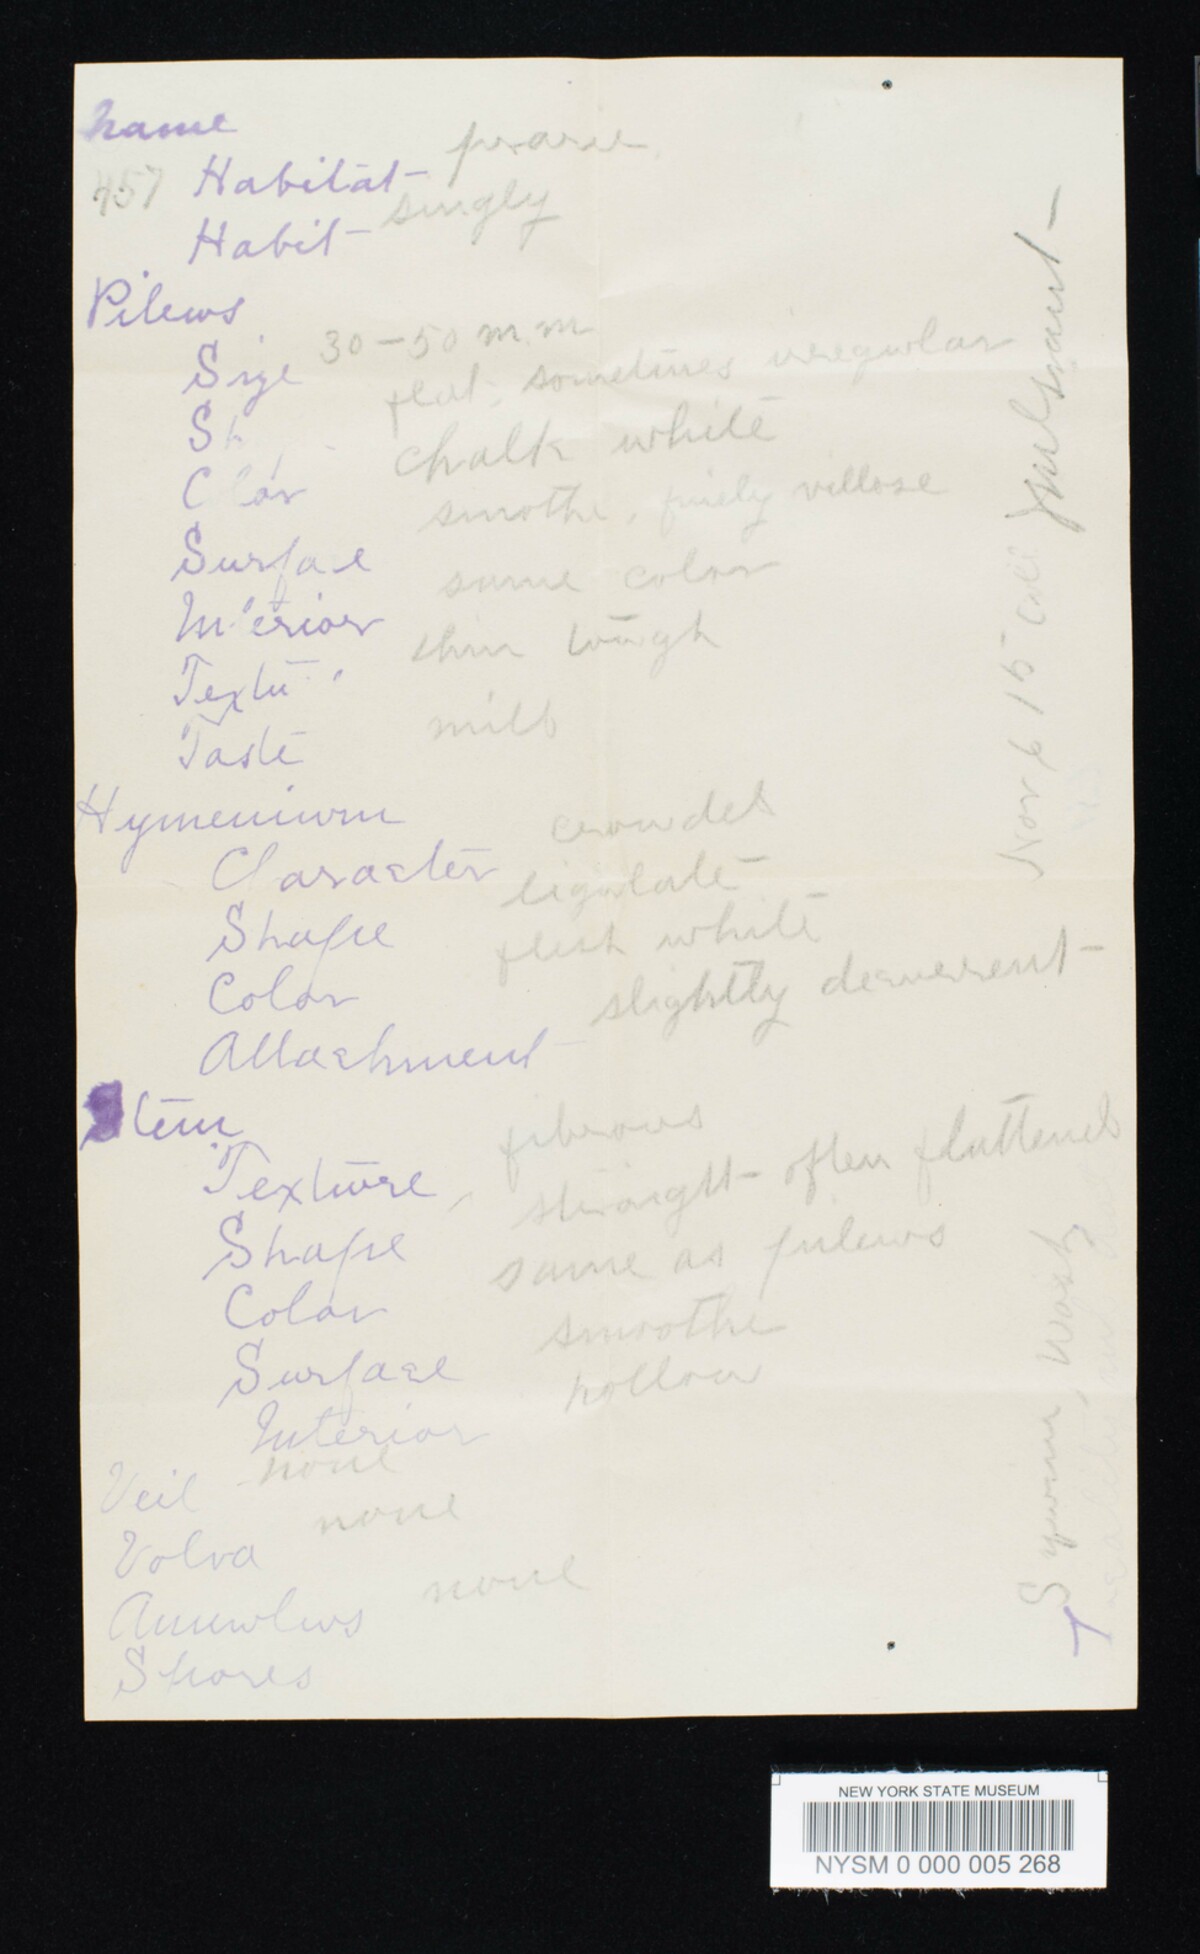 Name
457 Habitat- prarie
Habit- singly
Pileus
Size 30-50 m.m
Sh flat, sometimes irregular
Color chalk white
Surface smothe, finely villose
Interior same color
Textu thin tough
Taste mild
Hymenium
Character crowded
Shape ligulate
Color flesh white
Attachment slightly decurrent-
Stem
Texture, fibrous
Shape straight- often flattened
Color same as pileus
Surface smoothe
Interior hollow
Veil none
Volva none
Annulus none
Spores
Nov 6 15 Coll
Wash
NEW YORK STATE MUSEUM
NYSM 0 000 005 268